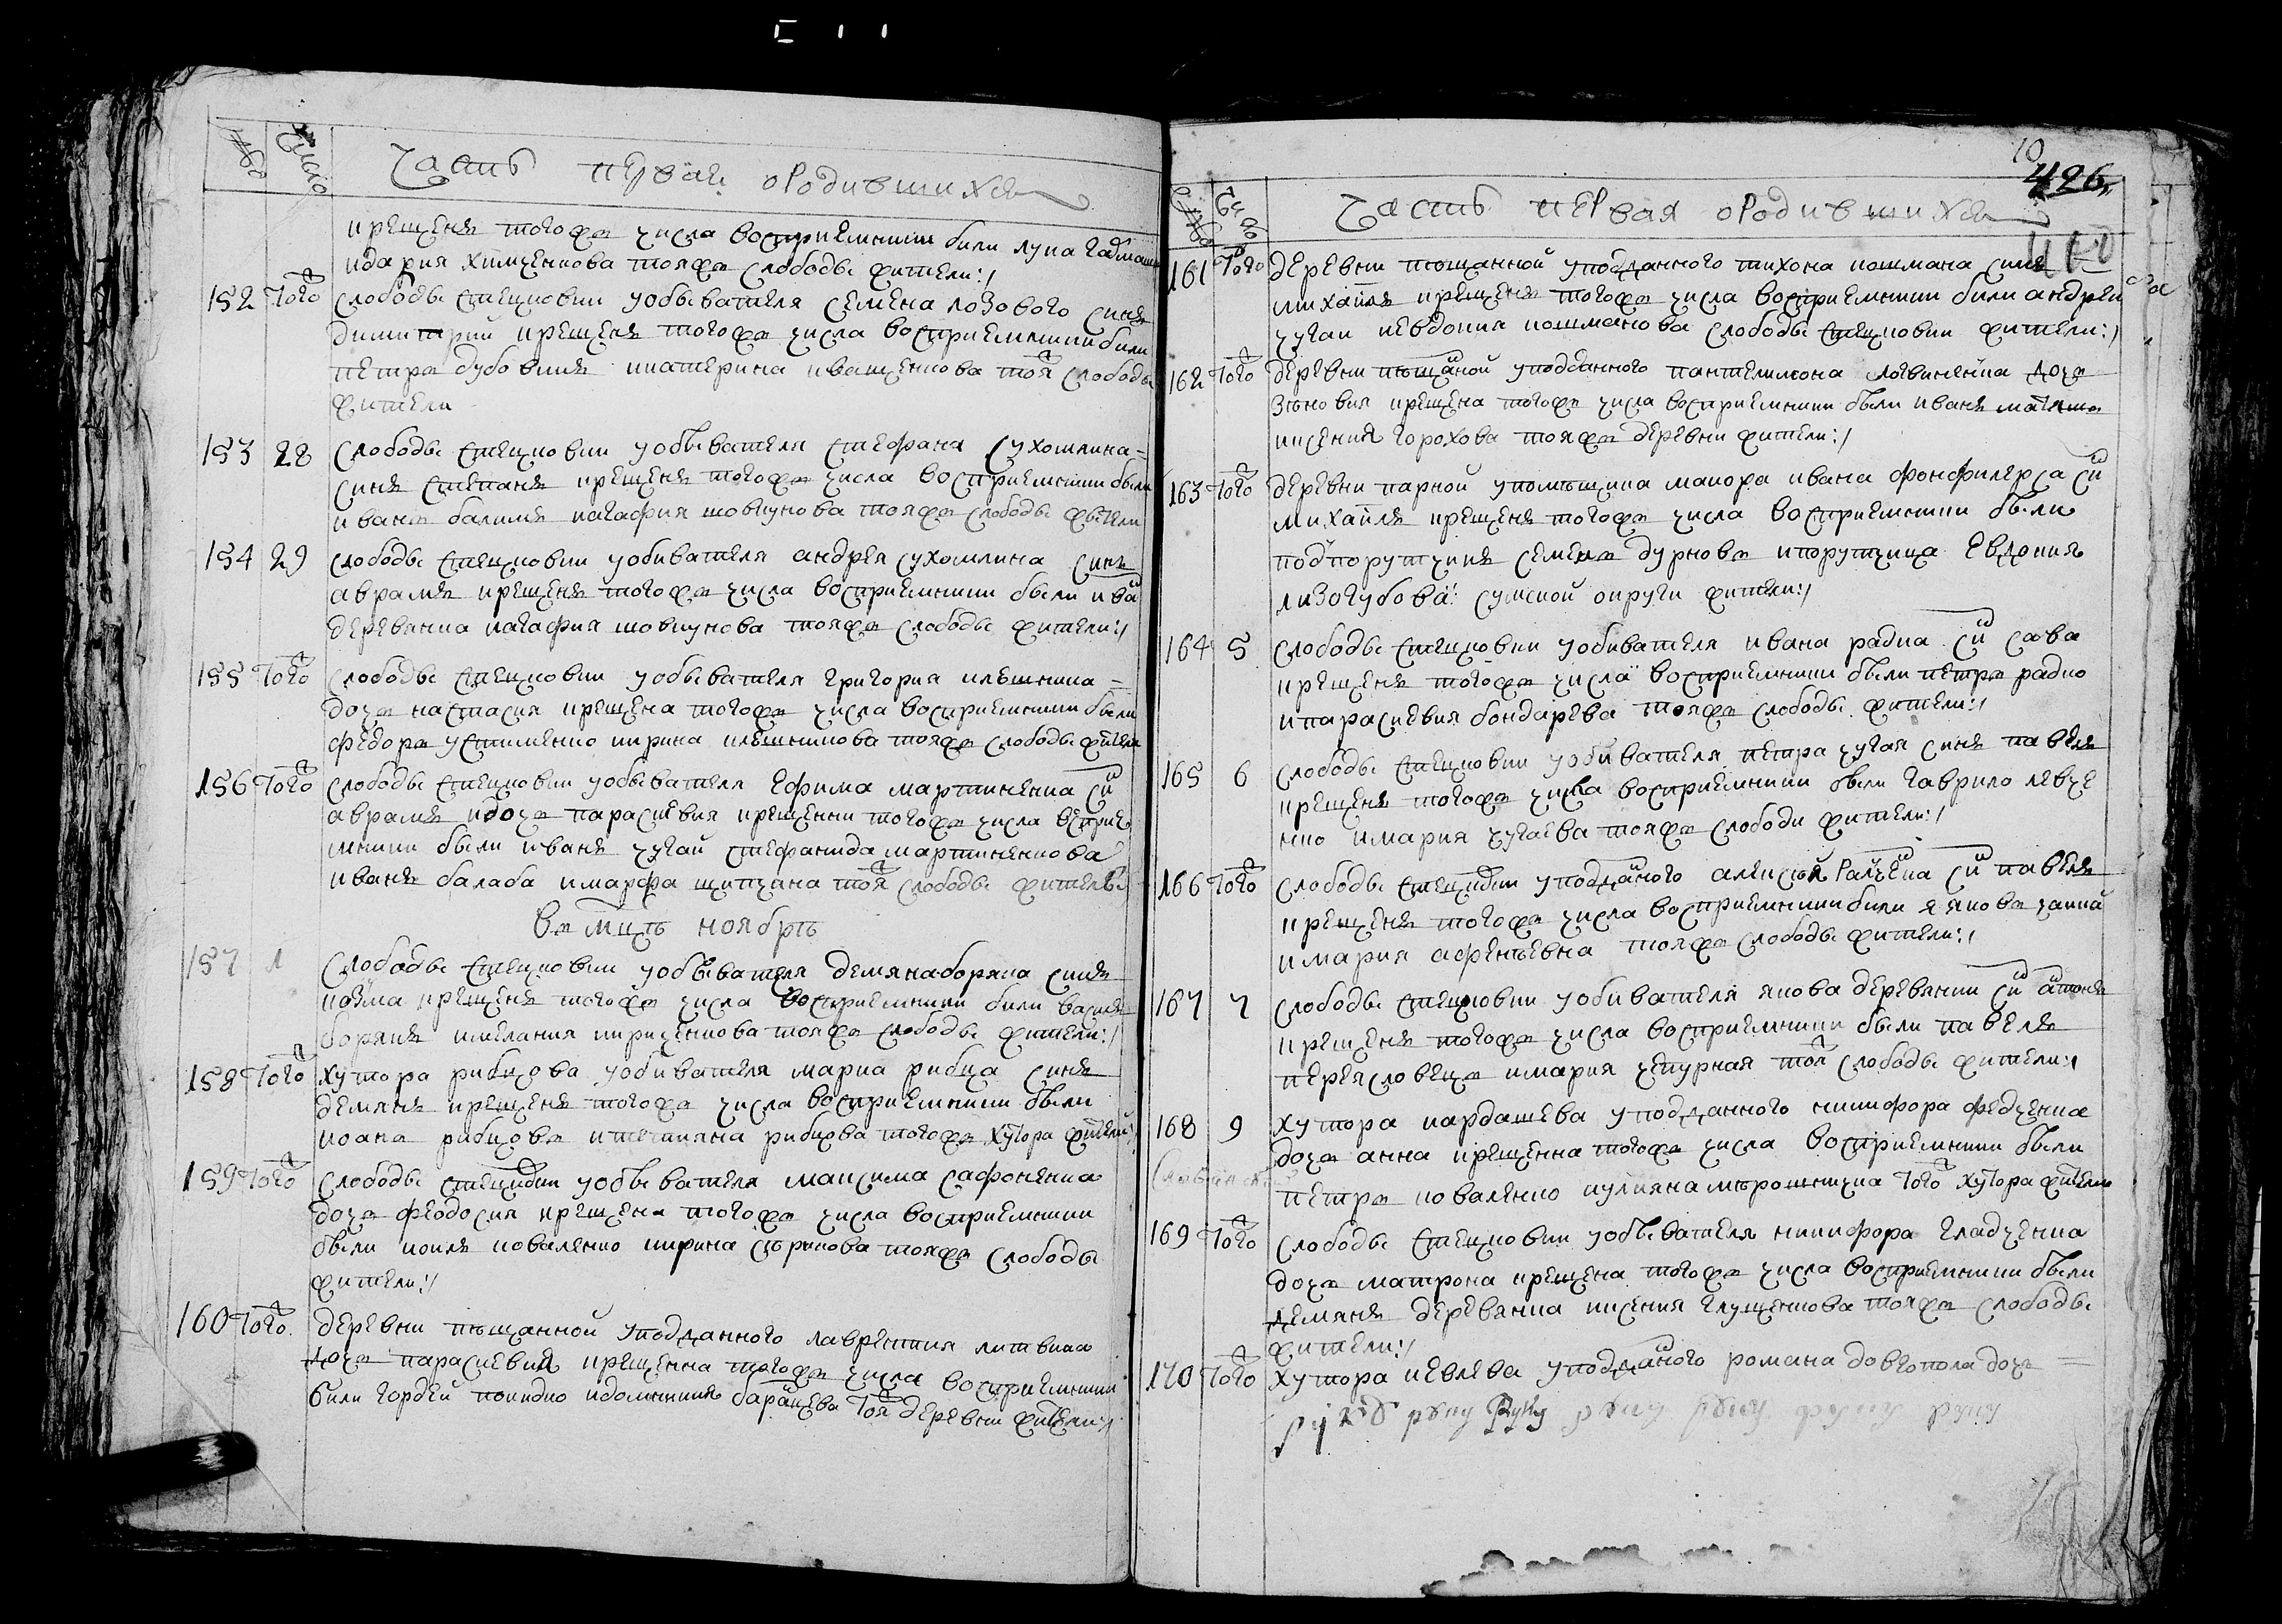 число
часть первая ородившихся
крещенъ тогожъ числа восприемники били лука
идария климченкова тояжъ слободы жители:/
152 того слободы стецковки уобывателя семена лозового синъ
димитрий крещенъ тогожъ числа восприемники били
петръ дубовикъ икатерина иващенкова тоя слободы
жители
153 28 слободы стецковки уобывателя стефана сухомлина=
синъ степанъ крещенъ тогожъ числа восприемники были
иванъ балимъ иагафия шовкунова тояжъ слободы жители
154 29 слободы стецковки уобивателя андрея сухомлина синъ
аврамъ крещенъ тогожъ числа восприемники были ива
деревянка иагафия шовкунова тояжъ слободы жители:/
155 того слободы стецковки уобывателя григория клешника=
дочъ настасия крещена тогожъ числа восприемники были
федоръ устименко ирина клешникова тояжъ слободы жители
156 того слободы стецковки уобывателя ефима мартиненка си
аврамъ идочъ параскевия крещенни тогожъ числа восприе
мники были иванъ чугай стефанида мартиненкова
иванъ балаба имарфа щипчана тоя слободы жители
въ мцъ ноябръ
157 1 слободы стецковки уобывателя демяна боряка синъ
козма крещенъ тогожъ числа восприемники били василь
борякъ имелания кириченкова тояжъ слободы жители:/
158 того хутора рибцова уобивателя марка рибца синъ
демянъ крещенъ тогожъ числа восприемники были
иоана рибцовъ итетияна рибцова тогожъ хутора жители
159 того слободы стецковки уобывателя максима сафоненка
дочъ феодосия крещена тогожъ числа восприемники
были коиля коваленко ирина сѣрикова тояжъ слободы
жители:/
160 того деревни пѣщанной уподданного лаврентия литвина
дочъ параскевия крещенна тогожъ числа восприемники
били гордей покидко идомникия баранцева тоя деревни жители:/
10
426
число
часть первая ородившихся
161 того деревни пѣщанной уподданного тихона кошмана синъ
михаилъ крещенъ тогожъ числа восприемники били андрей
чугаи иевдокия кошманова слободы стецковки жители:/
162 того деревни пѣщаной уподданного пантелимона логвиненка дочъ
зѣновия крещена тогожъ числа восприемники были иванъ
иксения горохова тояжъ деревни жители:/
163 того деревни парной упомѣщика маиора ивана фонфилерса си
михаилъ крещенъ тогожъ числа восприемники были
подпорутчикъ семенъ дурновъ ипорутчица евдокия
лизогубова: сумской округи жители:/
164 5 слободы стецковки уобивателя ивана радка си сава
крещенъ тогожъ числа восприемники были петръ радко
ипараскевия бондарева тояжъ слободы жители:/
165 6 слободы стецковки уобивателя петра чугая синъ павелъ
крещенъ тогожъ числа восприемники были гаврило левче
нко имария чугаева тояжъ слободи жители:/
166 того слободы стецковки уподданого алексѣя галченка си павелъ
крещенъ тогожъ числа восприемники били яковъ
имария афенъевна тояжъ слободы жители:/
167 7 слободы стецковки уобивателя якова деревянки си антонъ
крещенъ тогожъ числа восприемники были павелъ
переясловецъ имария чепурная тоя слободы жители:/
168 9 хутора кардашева уподданного никифора федченка
дочъ анна крещенна тогожъ числа восприемники были
петръ коваленко иулияна мѣрошничка того хутора жители
169 того слободы стецковки уобывателя никифора гладченка
дочъ матрона крещена тогожъ числа восприемники были
демянъ деревянка иксения глущенкова тояжъ слободы
жители:/
170 того хутора иевлева уподданого романа довгопола дочъ
руку руку